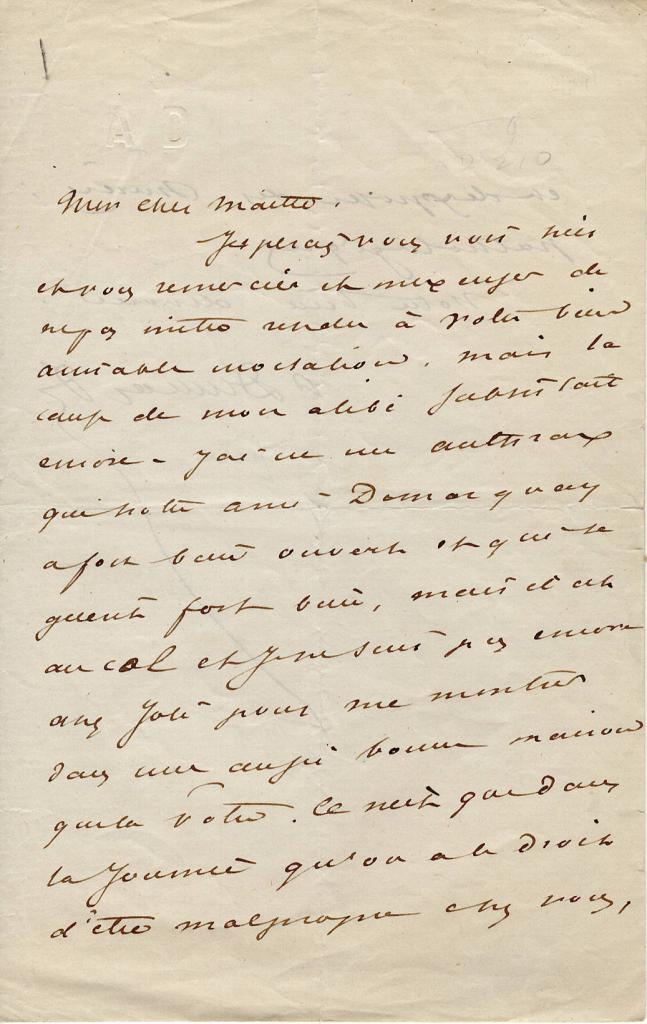 Mon cher maître.
J'esperais vous voir hier
et vous remercier et m'excuser de
ne pas m'être rendu à votre bien
aimable invitation. mais la
cause de mon alibi subsistait
encore - j'ai eu un anthrax
que notre ami Demarquay
a fort bien ouvert et qui se
guerit fort bien, mais il est
au col et je ne suis pas encore
assez joli pour me montrer
dans une aussi bonne maison
que la votre. Ce n'est que dans
la journée qu'on a le droit
d'être malpropre chez vous,